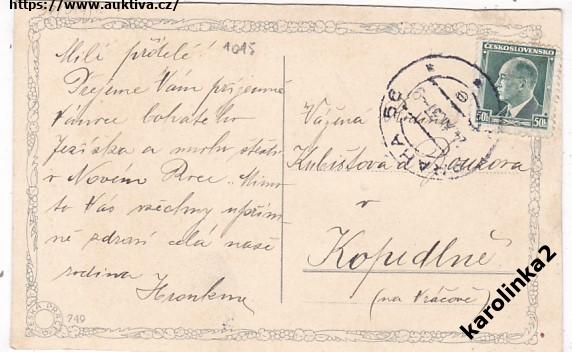 https://www.auktiva.cz/
Milí přátelé!
1015
Přejeme Vám příjemné
Vánoce bohatého
Ježíška a mnoho štěstí
v Novém Roce. Mimo
to Vás všechny upřím-
ně zdraví celá naše
rodina
ČESKOSLOVENSKO
50h 50h
PRAHA 56
Vážená
Kubištova a
v
Kopidlně
(na Vráčově)
749
karolinka2